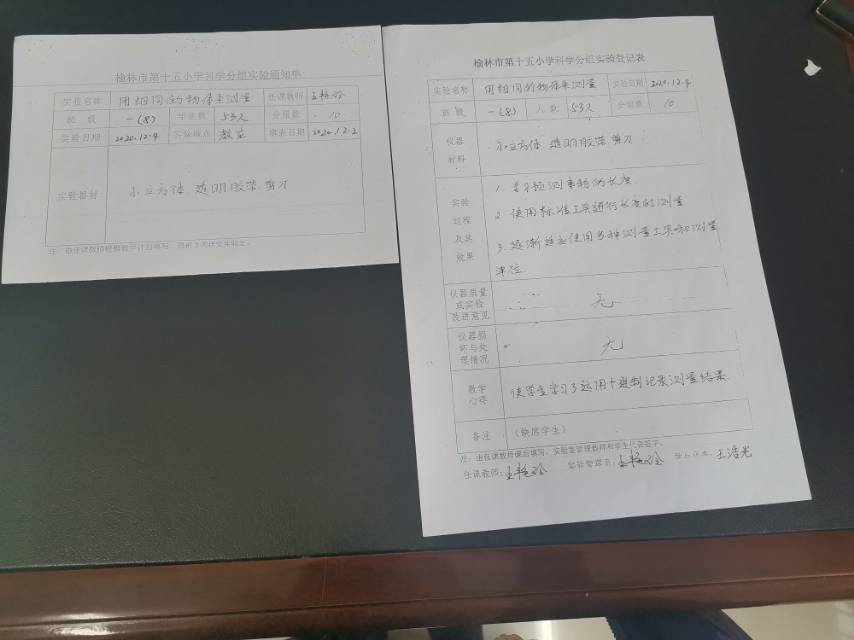 榆林市第十五小学科学分组实验通知单
实验名称 用相同的物体来测量 任课教师 王艳玲
班 级 一(8) 学生数 53人 分组数 10
实验日期 2020.12.4 实验地点 教室 填表日期 2020.12.2
实验器材 小立方体 透明胶带 剪刀
注：由任课教师根据教学计划填写，提前3天送交实验室。
榆林市第十五小学科学分组实验登记表
实验名称 用相同的物体来测量 实验日期 2020.12.4
班 级 一(8) 人 数 53人 分组数 10
仪器
材料
小立方体 透明胶带 剪刀
实验
过程
及其
效果
1. 学习预测事物的长度
2. 使用标准工具进行长度的测量
3. 逐渐适应使用多种测量工具和测量
单位
仪器质量
或实验
改进意见
无
仪器损
坏与处
理情况
无
教学
心得
使学生学习了运用十进制记录测量结果
备注 （缺席学生）
注：由任课教师课后填写，实验室管理教师和学生代表签字。
任课教师：王艳玲 实验管理员：王艳玲 学生代表：王浩光